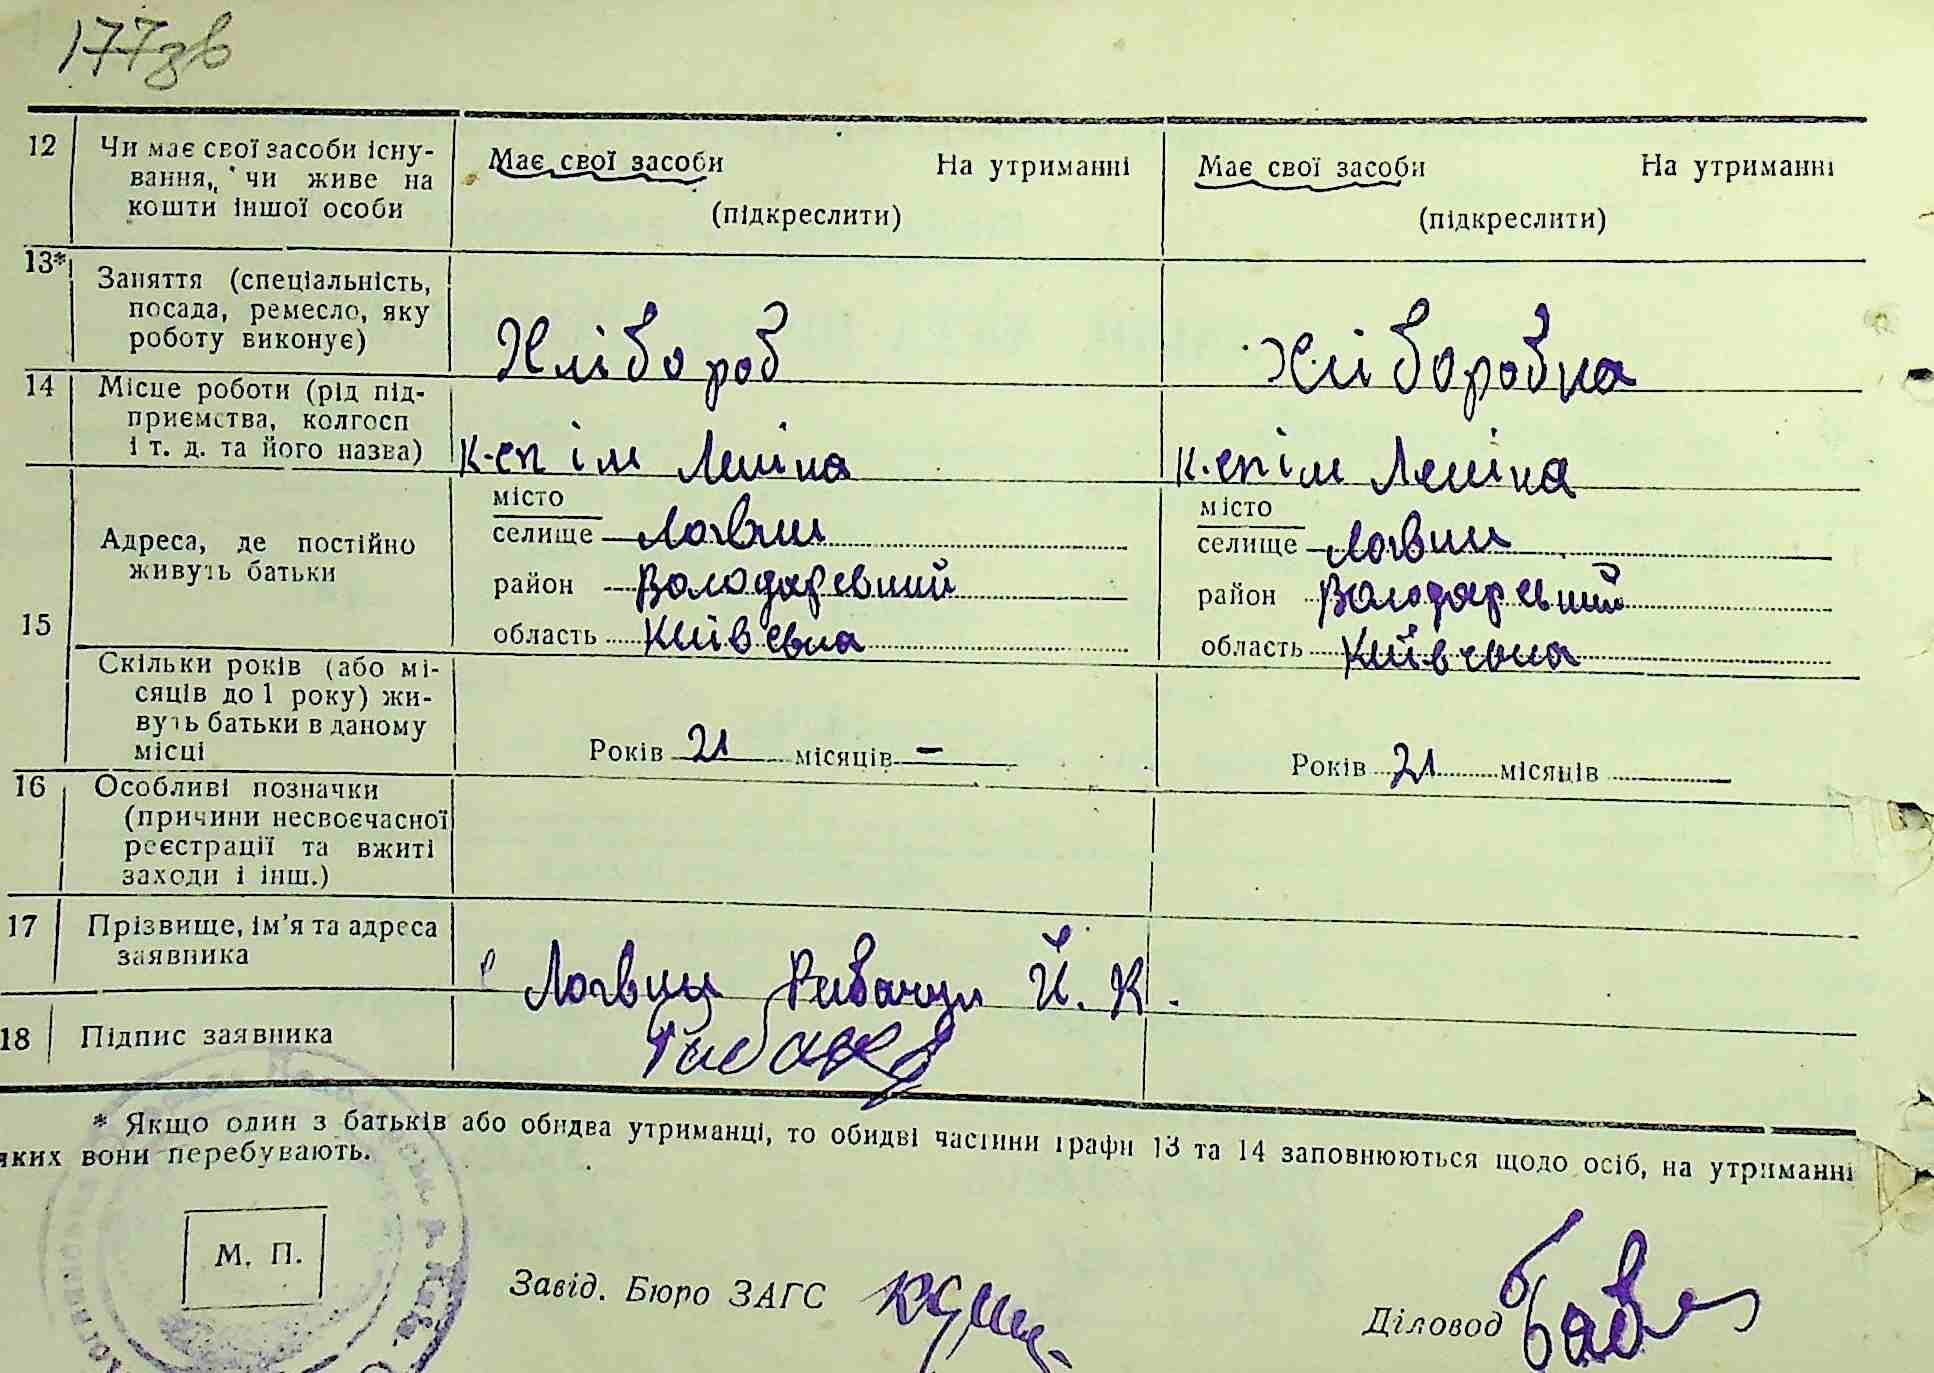 177зв
12 Чи має свої засоби існу-
вання, чи живе на
кошти іншої особи
Має свої засоби На утриманні
(підкреслити)
Має свої засоби На утриманні
(підкреслити)
13* Заняття (спеціальність,
посада, ремесло, яку
роботу виконує)
Хлібороб
Хліборобка
14 Місце роботи (рід під-
приємства, колгосп
і т. д. та його назва)
К-сп ім Леніна
К-сп ім Леніна
15 Адреса, де постійно
живуть батьки
місто
селище Логвин
район Володарський
область Київська
місто
селище Логвин
район Володарський
область Київська
Скільки років (або мі-
сяців до 1 року) жи-
вуть батьки в даному
місці
Років 21 місяців —
Років 21 місяців
16 Особливі позначки
(причини несвоєчасної
реєстрації та вжиті
заходи і інш.)
17 Прізвище, ім'я та адреса
заявника
с Логвин Й. К.
18 Підпис заявника
* Якщо один з батьків або обидва утриманці, то обидві частини графи 13 та 14 заповнюються щодо осіб, на утриманні
яких вони перебувають.
М. П.
Завід. Бюро ЗАГС
Діловод